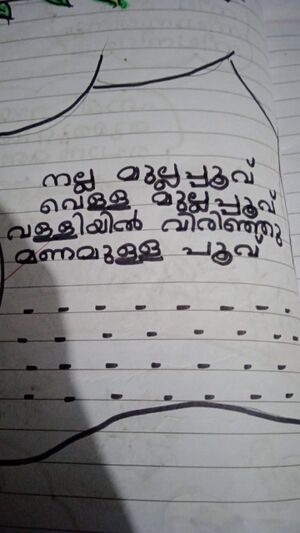 നല്ല മുല്ലപ്പൂവ്
വെള്ള മുല്ലപ്പൂവ്
വള്ളിയിൽ വിരിഞ്ഞു
മണമുള്ള പൂവ്